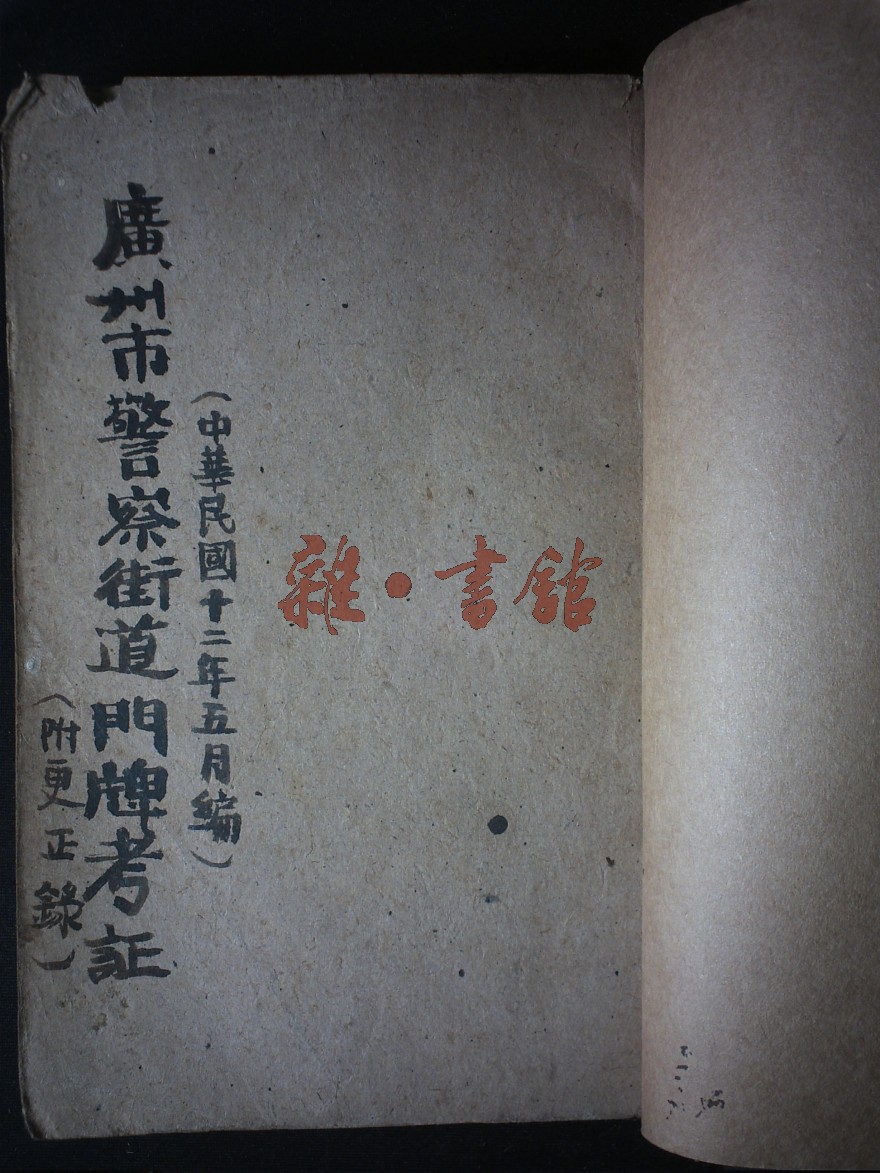 （中華民國十二年五月編）
廣州市警察街道門牌考証
（附更正錄）
雜·書館